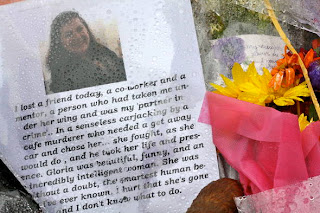 I lost a friend today, a co-worker and a
mentor, a person who had taken me un
der her wing and was my 'partner in
crime'.. In a senseless carjacking by a
cafe murderer who needed a get away
car and chose her... she fought, as she
would do , and he took her life and prese
ence. Gloria was beautiful, funny, and an
incredibly intelligent woman. She was
without a doubt, the smartest human be
I've ever known. I hurt that she's gone
and I don't know what to do.